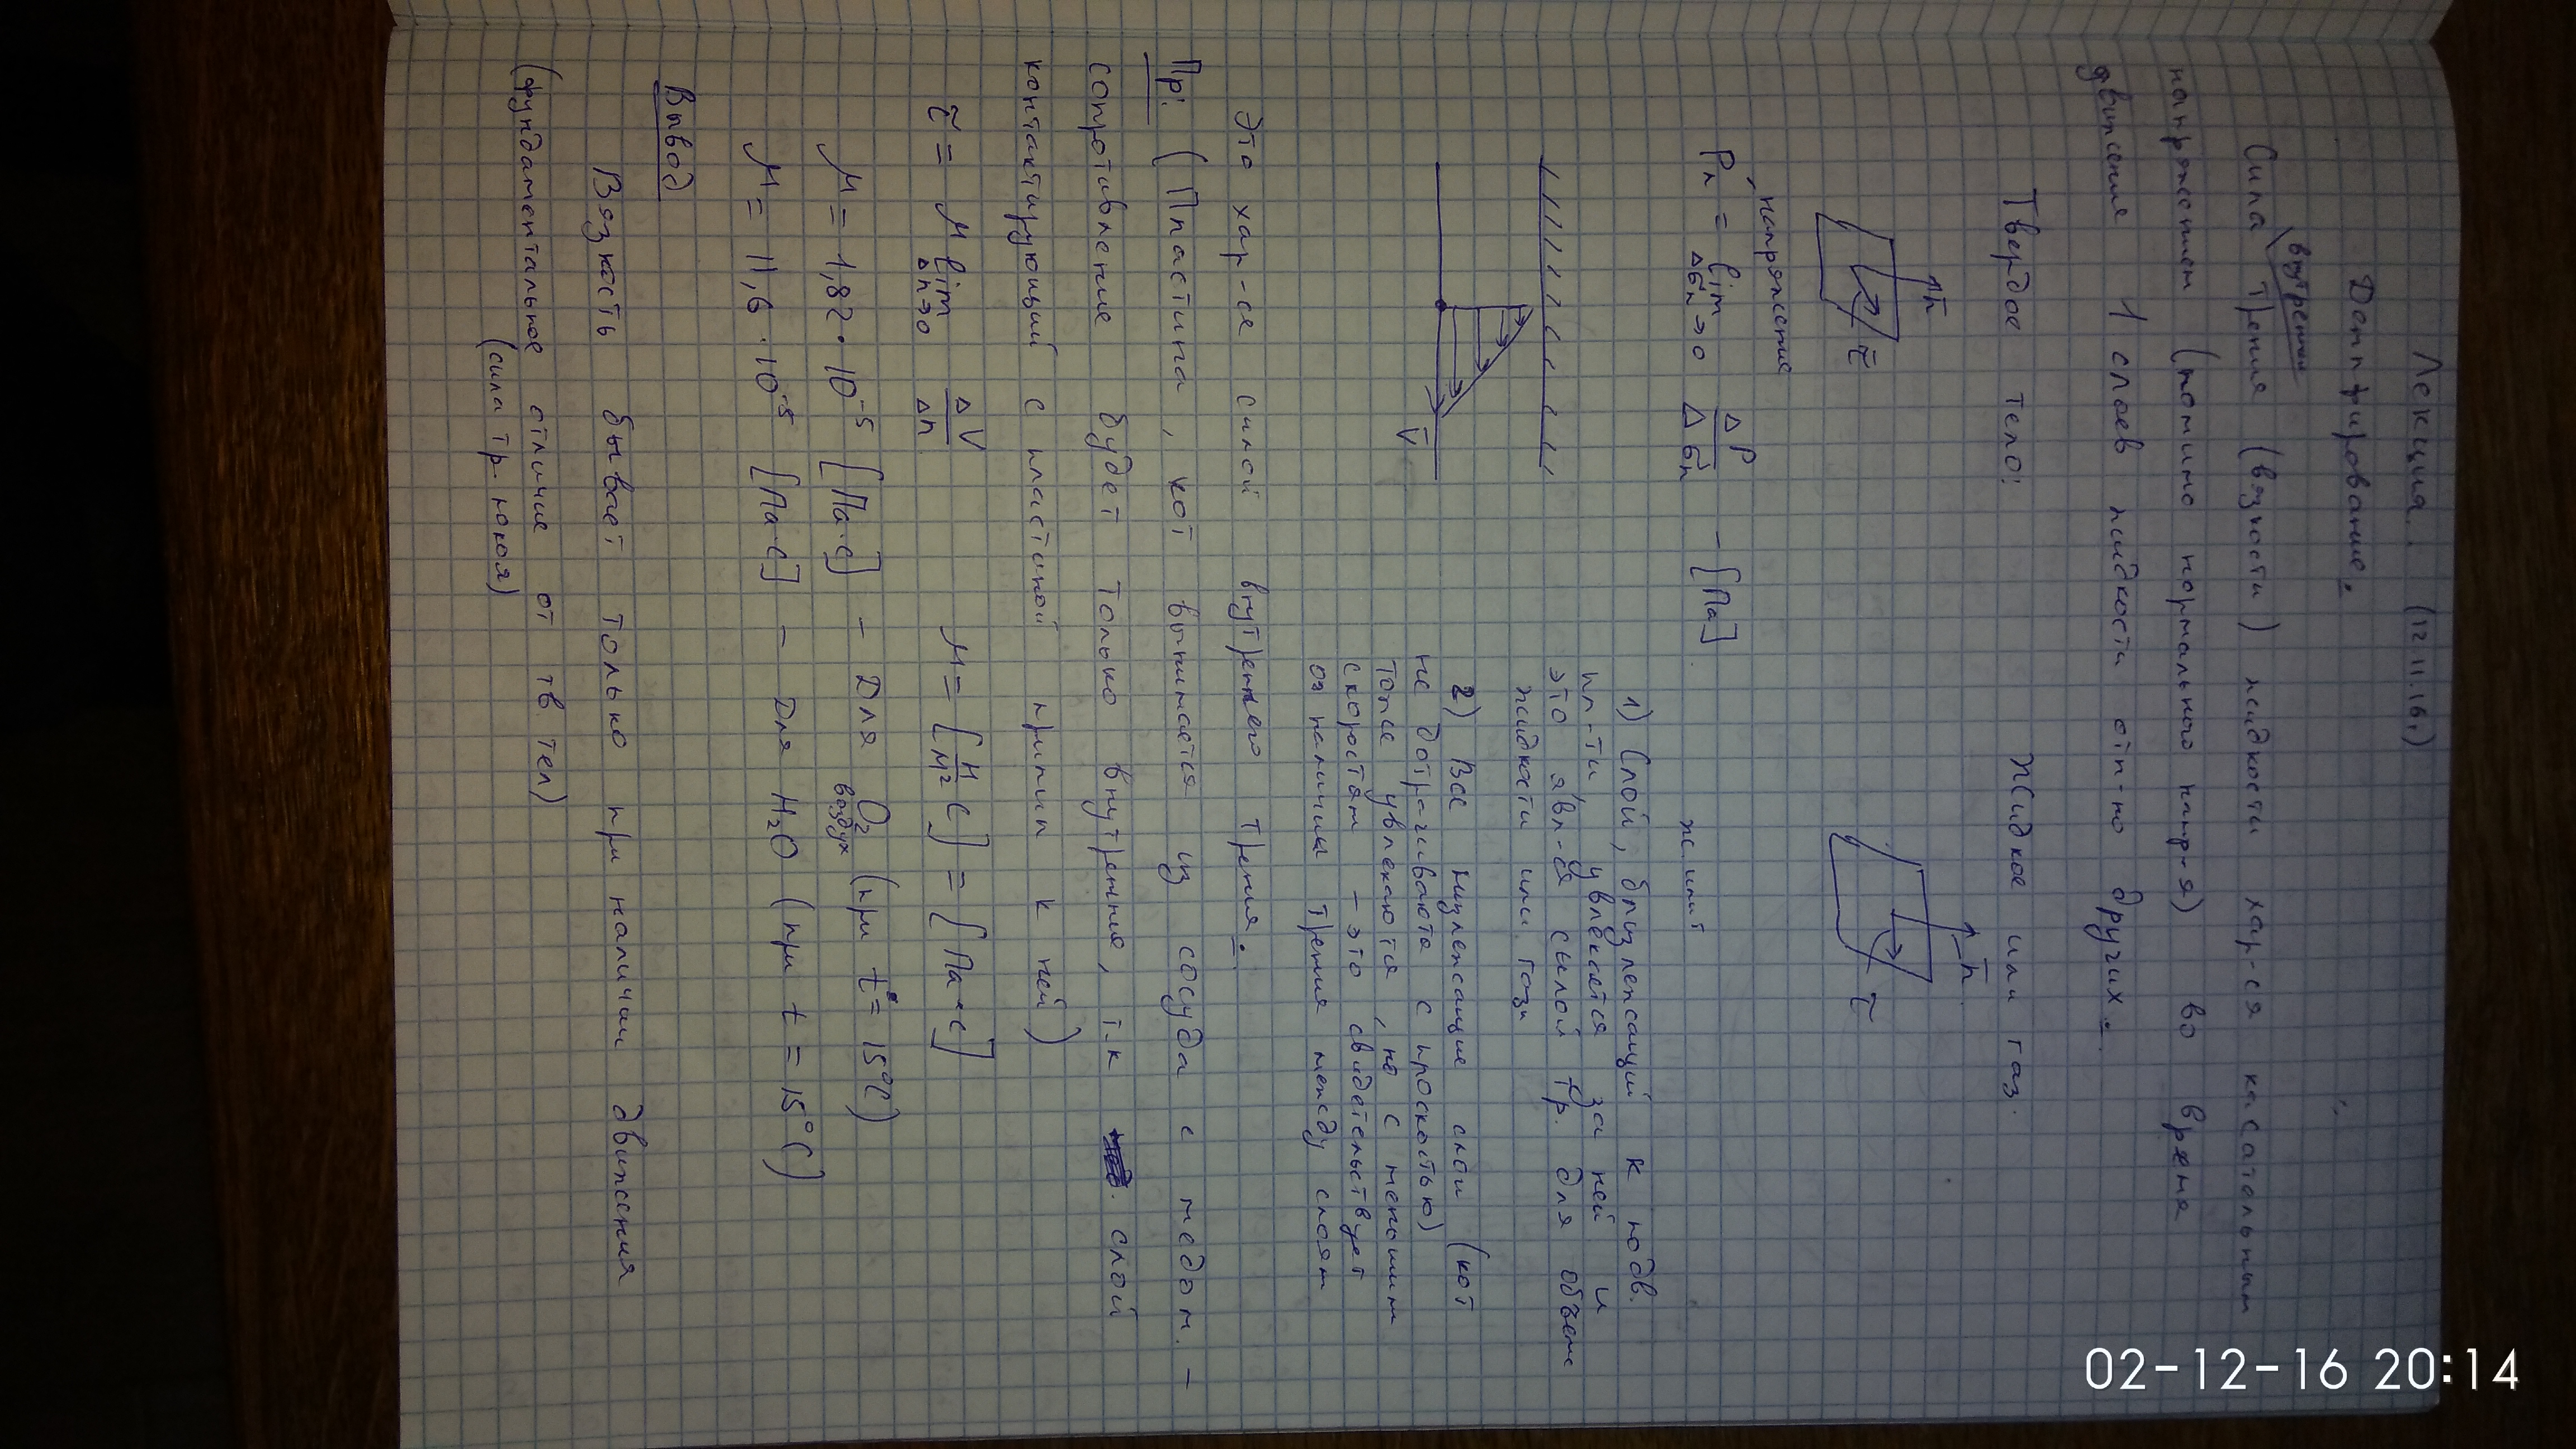 Лекция. (12.11.16г)
Демпфирование.
внутрен
Сила трения (вязкости) жидкости хар-ся касательным
напряжением (помимо нормального напр-я) во время
движения 1 слоев жидкости отн-но других.
Твердое тело: Жидкое или газ.
n̄ n̄
τ̄ τ̄
напряжение
Pn = lim Δσn→0 ΔP/Δσn – [Па]
1) Слой, близлежащий к подв.
пл-ти, увлекается за ней и
это явл-ся силой тр. для объёма
жидкости или газа
2) Все нижлежащие слои (кот
не дотр-гиваются с плоскостью)
тоже увлекаются, но с меньшим
скоростям – это свидетельствует
о наличии трения между слоям
V̄
Это хар-ся силой внутреннего трения.
Пр: (Пластина, кот вынимается из сосуда с медом. –
сопротивление будет только внутренне, т.к слой
контактирующий с пластиной прилип к ней)
τ̄ = μ lim Δn→0 ΔV/Δn μ = [н/м² с] = [Па·с]
μ = 1,82·10⁻⁵ [Па·с] – Для O₂ (при t° = 15°C)
воздух
μ = 11,6·10⁻⁵ [Па·с] – Для H₂O (при t = 15°C)
Вывод
Вязкость бывает только при наличии движения
(фундаментальное отличие от тв. тел)
(сила тр. покоя)
02-12-16 20:14